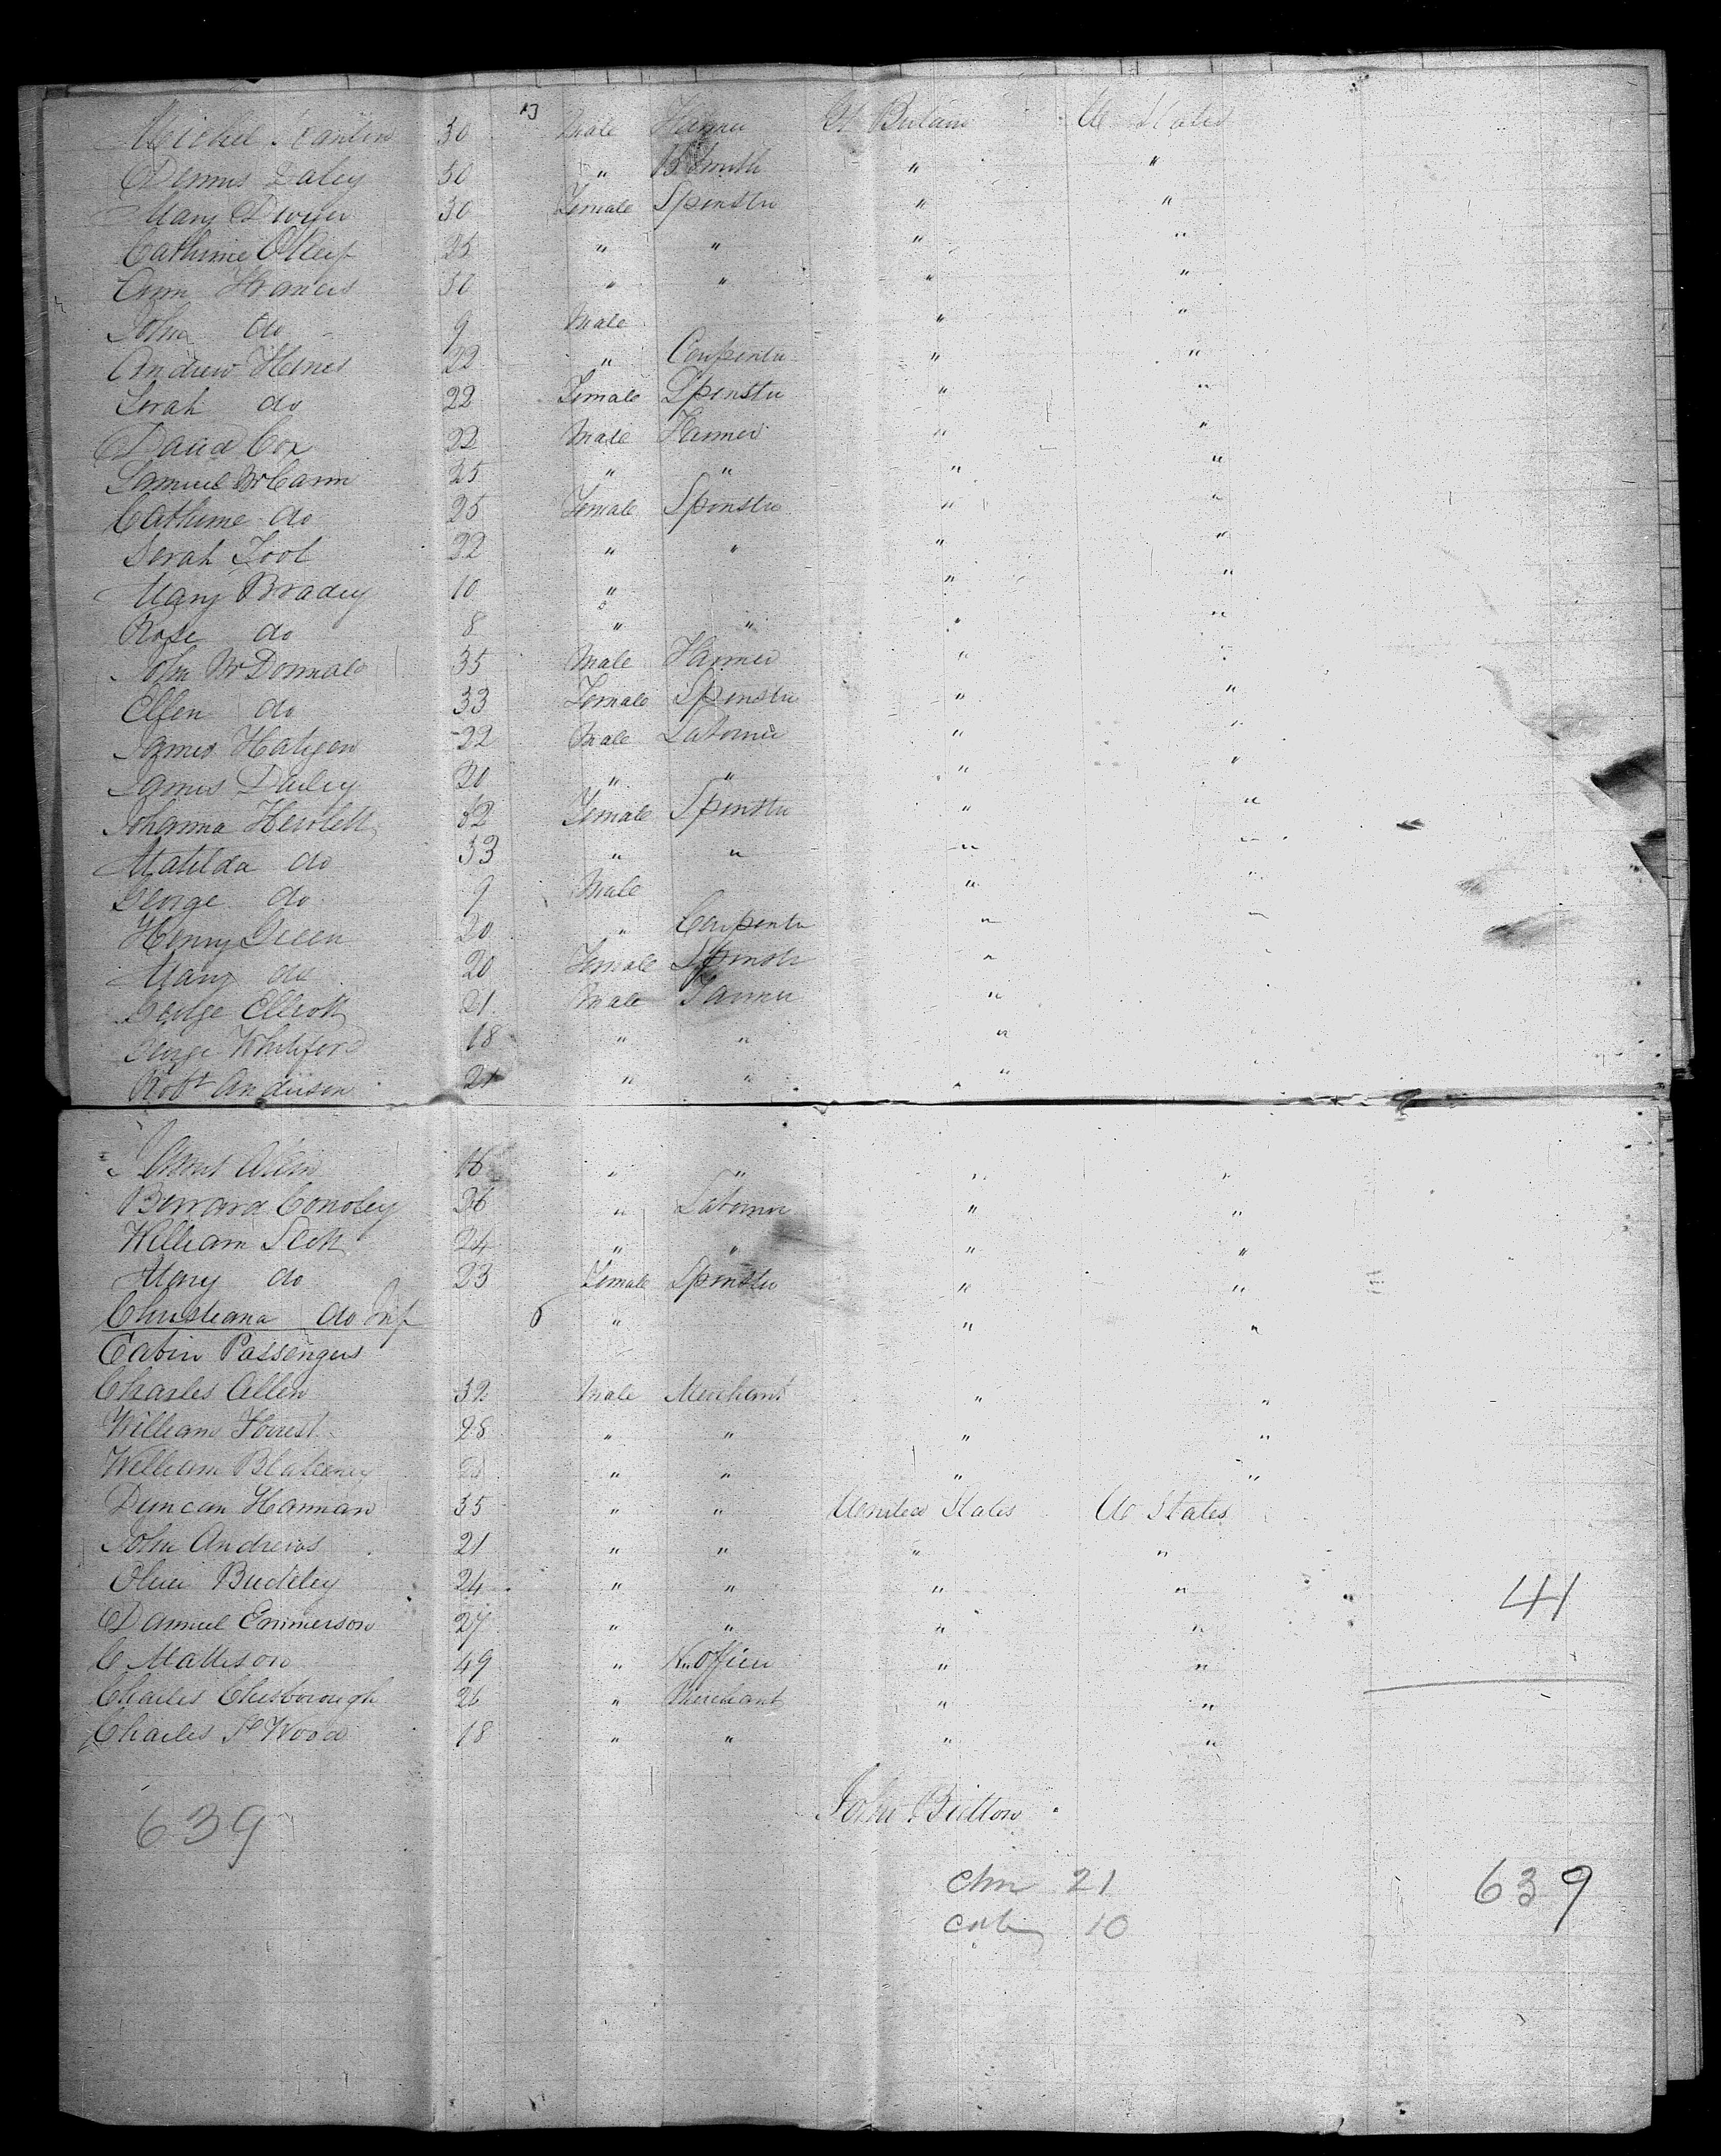 13
Michel 30 Male Farmer Gt Britain U States
Dennis Daley 30 " B Smith " "
Mary Dwyer 30 Female Spinster " "
Catherine OKeef 25 " " " "
Ann Francis 30 " " " "
John do 9 Male " "
Andrew Hines 22 " Carpenter " "
Sarah do 22 Female Spinster " "
David Cox 22 Male Farmer " "
Samuel McCann 25 " " " "
Catherine do 25 Female Spinster " "
Sarah Tool 22 " " " "
Mary Bradey 10 " " "
Rose do 8 " " " "
John McDonnald 35 Male Farmer " "
Ellen do 33 Female Spinster " "
James Hatigen 22 Male Labourer " "
James Dailey 20 " " " "
Johanna Hewlett 32 Female Spinster " "
Matilda do 33 " " " "
George do 9 Male " "
Henry Green 20 " Carpenter " "
Mary do 20 Female Spinstr " "
George Elliott 21 Male Farmer "
George Whiteford 18 " " "
Robt Anderson 21 " " "
16 " " " "
Bernard Conoley 26 " Labourer " "
William Scott 24 " " " "
Mary do 23 Female Spinster " "
Christiana do Inf 6 " " "
Cabin Passengers
Charles Allen 32 Male Merchant " "
William Forrest 28 " " " "
William Blakeney " " " "
Duncan Hannan 35 " " United States U States
John Andrews 21 " " " "
Oliver Buckley 24 " " " "
41
Samuel Emmerson 27 " " " "
C Mattison 49 " N. Officer " "
Charles Chesborough 26 " Merchant " "
Charles S Wood 18 " " " "
John Britton
639
chn 21
639
cabin 10